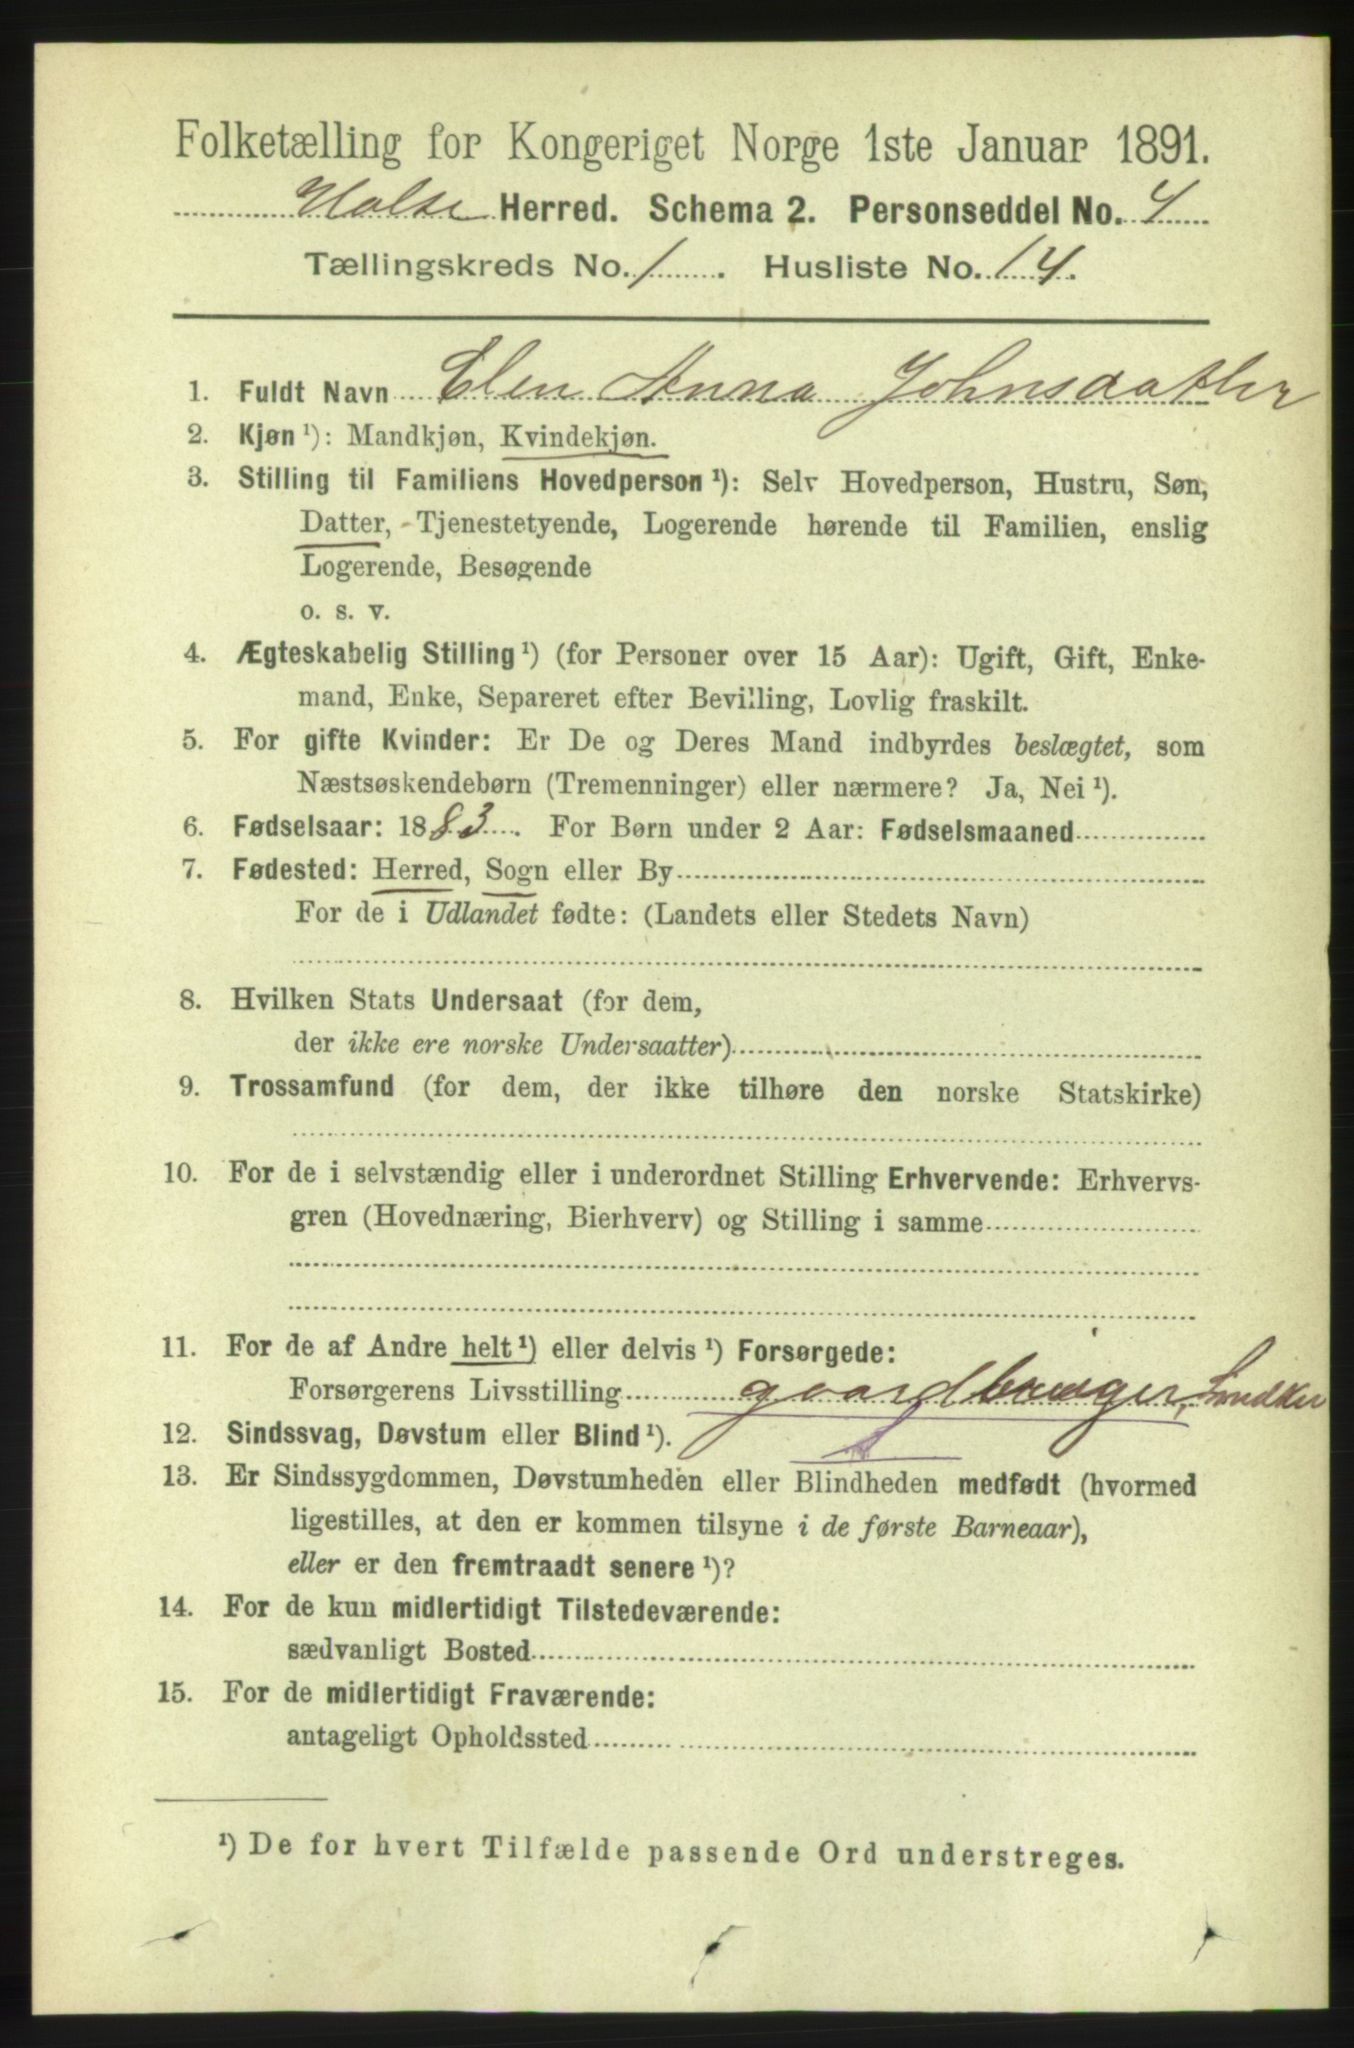 Folketælling for Kongeriget Norge 1ste Januar 1891.
Halse Herred. Schema 2. Personseddel No. 4
Tællingskreds No. 1. Husliste No. 14.
1. Fuldt Navn Elen Anna Johnsdatter
2. Kjøn ¹): Mandkjøn, Kvindekjøn.
3. Stilling til Familiens Hovedperson ¹): Selv Hovedperson, Hustru, Søn,
Datter, Tjenestetyende, Logerende hørende til Familien, enslig
Logerende, Besøgende
o. s. v.
4. Ægteskabelig Stilling ¹) (for Personer over 15 Aar): Ugift, Gift, Enke-
mand, Enke, Separeret efter Bevilling, Lovlig fraskilt.
5. For gifte Kvinder: Er De og Deres Mand indbyrdes beslægtet, som
Næstsøskendebørn (Tremenninger) eller nærmere? Ja, Nei ¹).
6. Fødselsaar: 1883. For Børn under 2 Aar: Fødselsmaaned
7. Fødested: Herred, Sogn eller By
For de i Udlandet fødte: (Landets eller Stedets Navn)
8. Hvilken Stats Undersaat (for dem,
der ikke ere norske Undersaatter)
9. Trossamfund (for dem, der ikke tilhøre den norske Statskirke)
10. For de i selvstændig eller i underordnet Stilling Erhvervende: Erhvervs-
gren (Hovednæring, Bierhverv) og Stilling i samme
11. For de af Andre helt ¹) eller delvis ¹) Forsørgede:
Forsørgerens Livsstilling gaardbruger, Snedker
12. Sindssvag, Døvstum eller Blind ¹).
13. Er Sindssygdommen, Døvstumheden eller Blindheden medfødt (hvormed
ligestilles, at den er kommen tilsyne i de første Barneaar),
eller er den fremtraadt senere ¹)?
14. For de kun midlertidigt Tilstedeværende:
sædvanligt Bosted
15. For de midlertidigt Fraværende:
antageligt Opholdssted
¹) De for hvert Tilfælde passende Ord understreges.